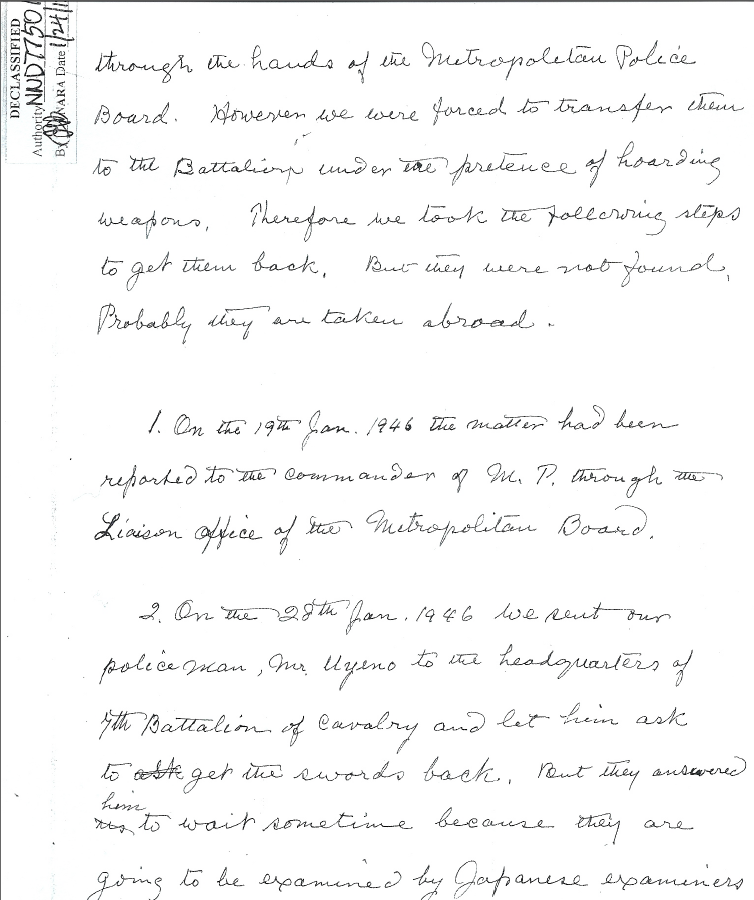 DECLASSIFIED
Authority NND 7750
By NARA Date 1/24/1
through the hands of the Metropolitan Police
Board. However we were forced to transfer them
to the Battalion under the pretence of hoarding
weapons. Therefore we took the following steps
to get them back. But they were not found.
Probably they are taken abroad.
1. On the 19th Jan. 1946 the matter had been
reported to the commander of M. P. through the
Liaison office of the Metropolitan Board.
2. On the 28th Jan. 1946 we sent our
police man, Mr. Uyeno to the headquarters of
7th Battalion of Cavalry and let him ask
to ask get the swords back. But they answered
him
to wait sometime because they are
going to be examined by Japanese examiners